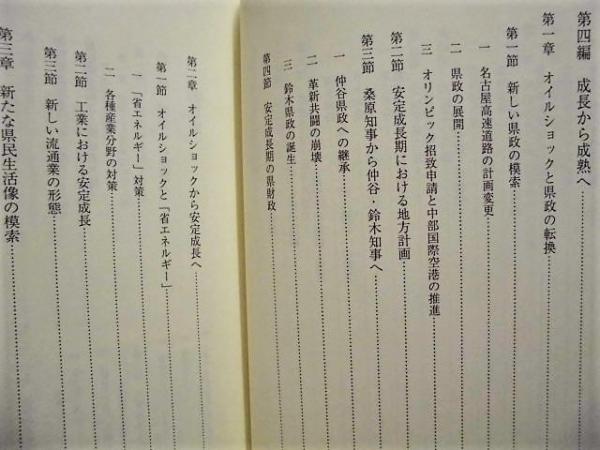 第四編　成長から成熟へ……………
第一章　オイルショックと県政の転換……………
第一節　新しい県政の模索……………
一　名古屋高速道路の計画変更……………
二　県政の展開……………
三　オリンピック招致申請と中部国際空港の推進……………
第二節　安定成長期における地方計画……………
第三節　桑原知事から仲谷・鈴木知事へ……………
一　仲谷県政への継承……………
二　革新共闘の崩壊……………
三　鈴木県政の誕生……………
第四節　安定成長期の県財政……………
第二章　オイルショックから安定成長へ……………
第一節　オイルショックと「省エネルギー」……………
一　「省エネルギー」対策……………
二　各種産業分野の対策……………
第二節　工業における安定成長……………
第三節　新しい流通業の形態……………
第三章　新たな県民生活像の模索……………